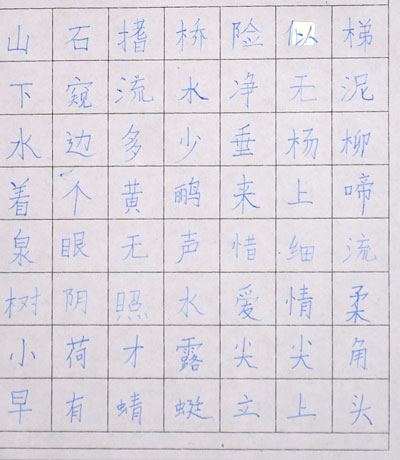 山石搘桥险似梯
下窥流水净无泥
水边多少垂杨柳
着个黄鹂来上啼
泉眼无声惜细流
树阴照水爱情柔
小荷才露尖尖角
早有蜻蜓立上头